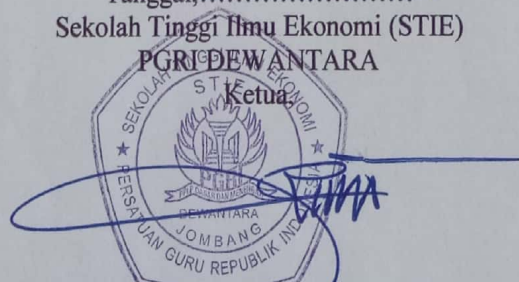 Tanggal,..............................
Sekolah Tinggi Ilmu Ekonomi (STIE)
PGRI DEWANTARA
Ketua,
SEKOLAH TINGGI ILMU EKONOMI
STIE
DEWANTARA
JOMBANG
PERSATUAN GURU REPUBLIK INDONESIA